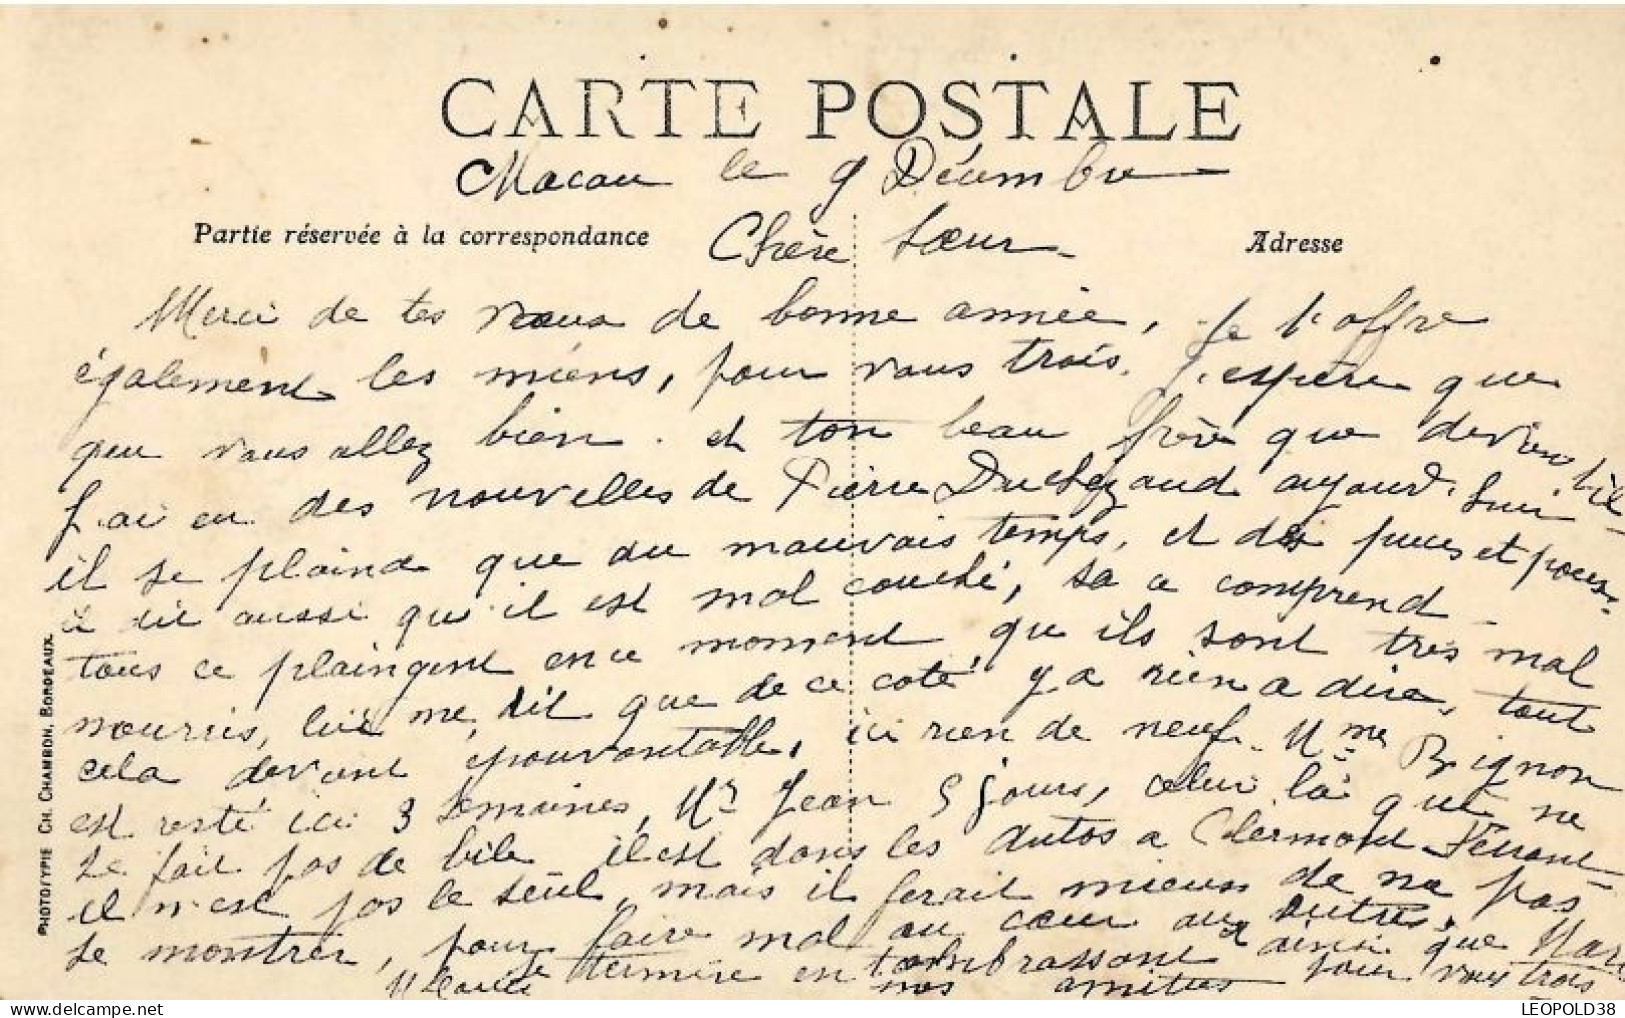 CARTE POSTALE
Macau le 9 Décembre
Partie réservée à la correspondance
Chère sœur
Adresse
Merci de tes vœux de bonne année, je t'offre
également les miens, pour vous trois. J'espère que
que vous allez bien. et ton beau frère que devient-il
J'ai eu des nouvelles de Pierre aujourd'hui
il se plaind que du mauvais temps, et des puces et poux.
il dit aussi qu'il est mal couché, sa ce comprend
tous ce plaingent en ce moment qu'ils sont très mal
nourris, lui me dit que de ce coté y a rien a dire, tout
cela devient épouvantable, ici rien de neuf. Mme Bignon
est resté ici 3 semaines, Mr Jean 5 jours, celui là qui ne
se fait pas de bile il est dans les autos a Clermont-Ferrant
il n'est pas le seul, mais il ferait mieux de ne pas
se montrer, pour faire mal au cœur aux autres.
Je termine en t'embrassant ainsi que
nos amitiés pour vous trois
PHOTOTYPIE CH. CHAMBON, BORDEAUX.
LEOPOLD38